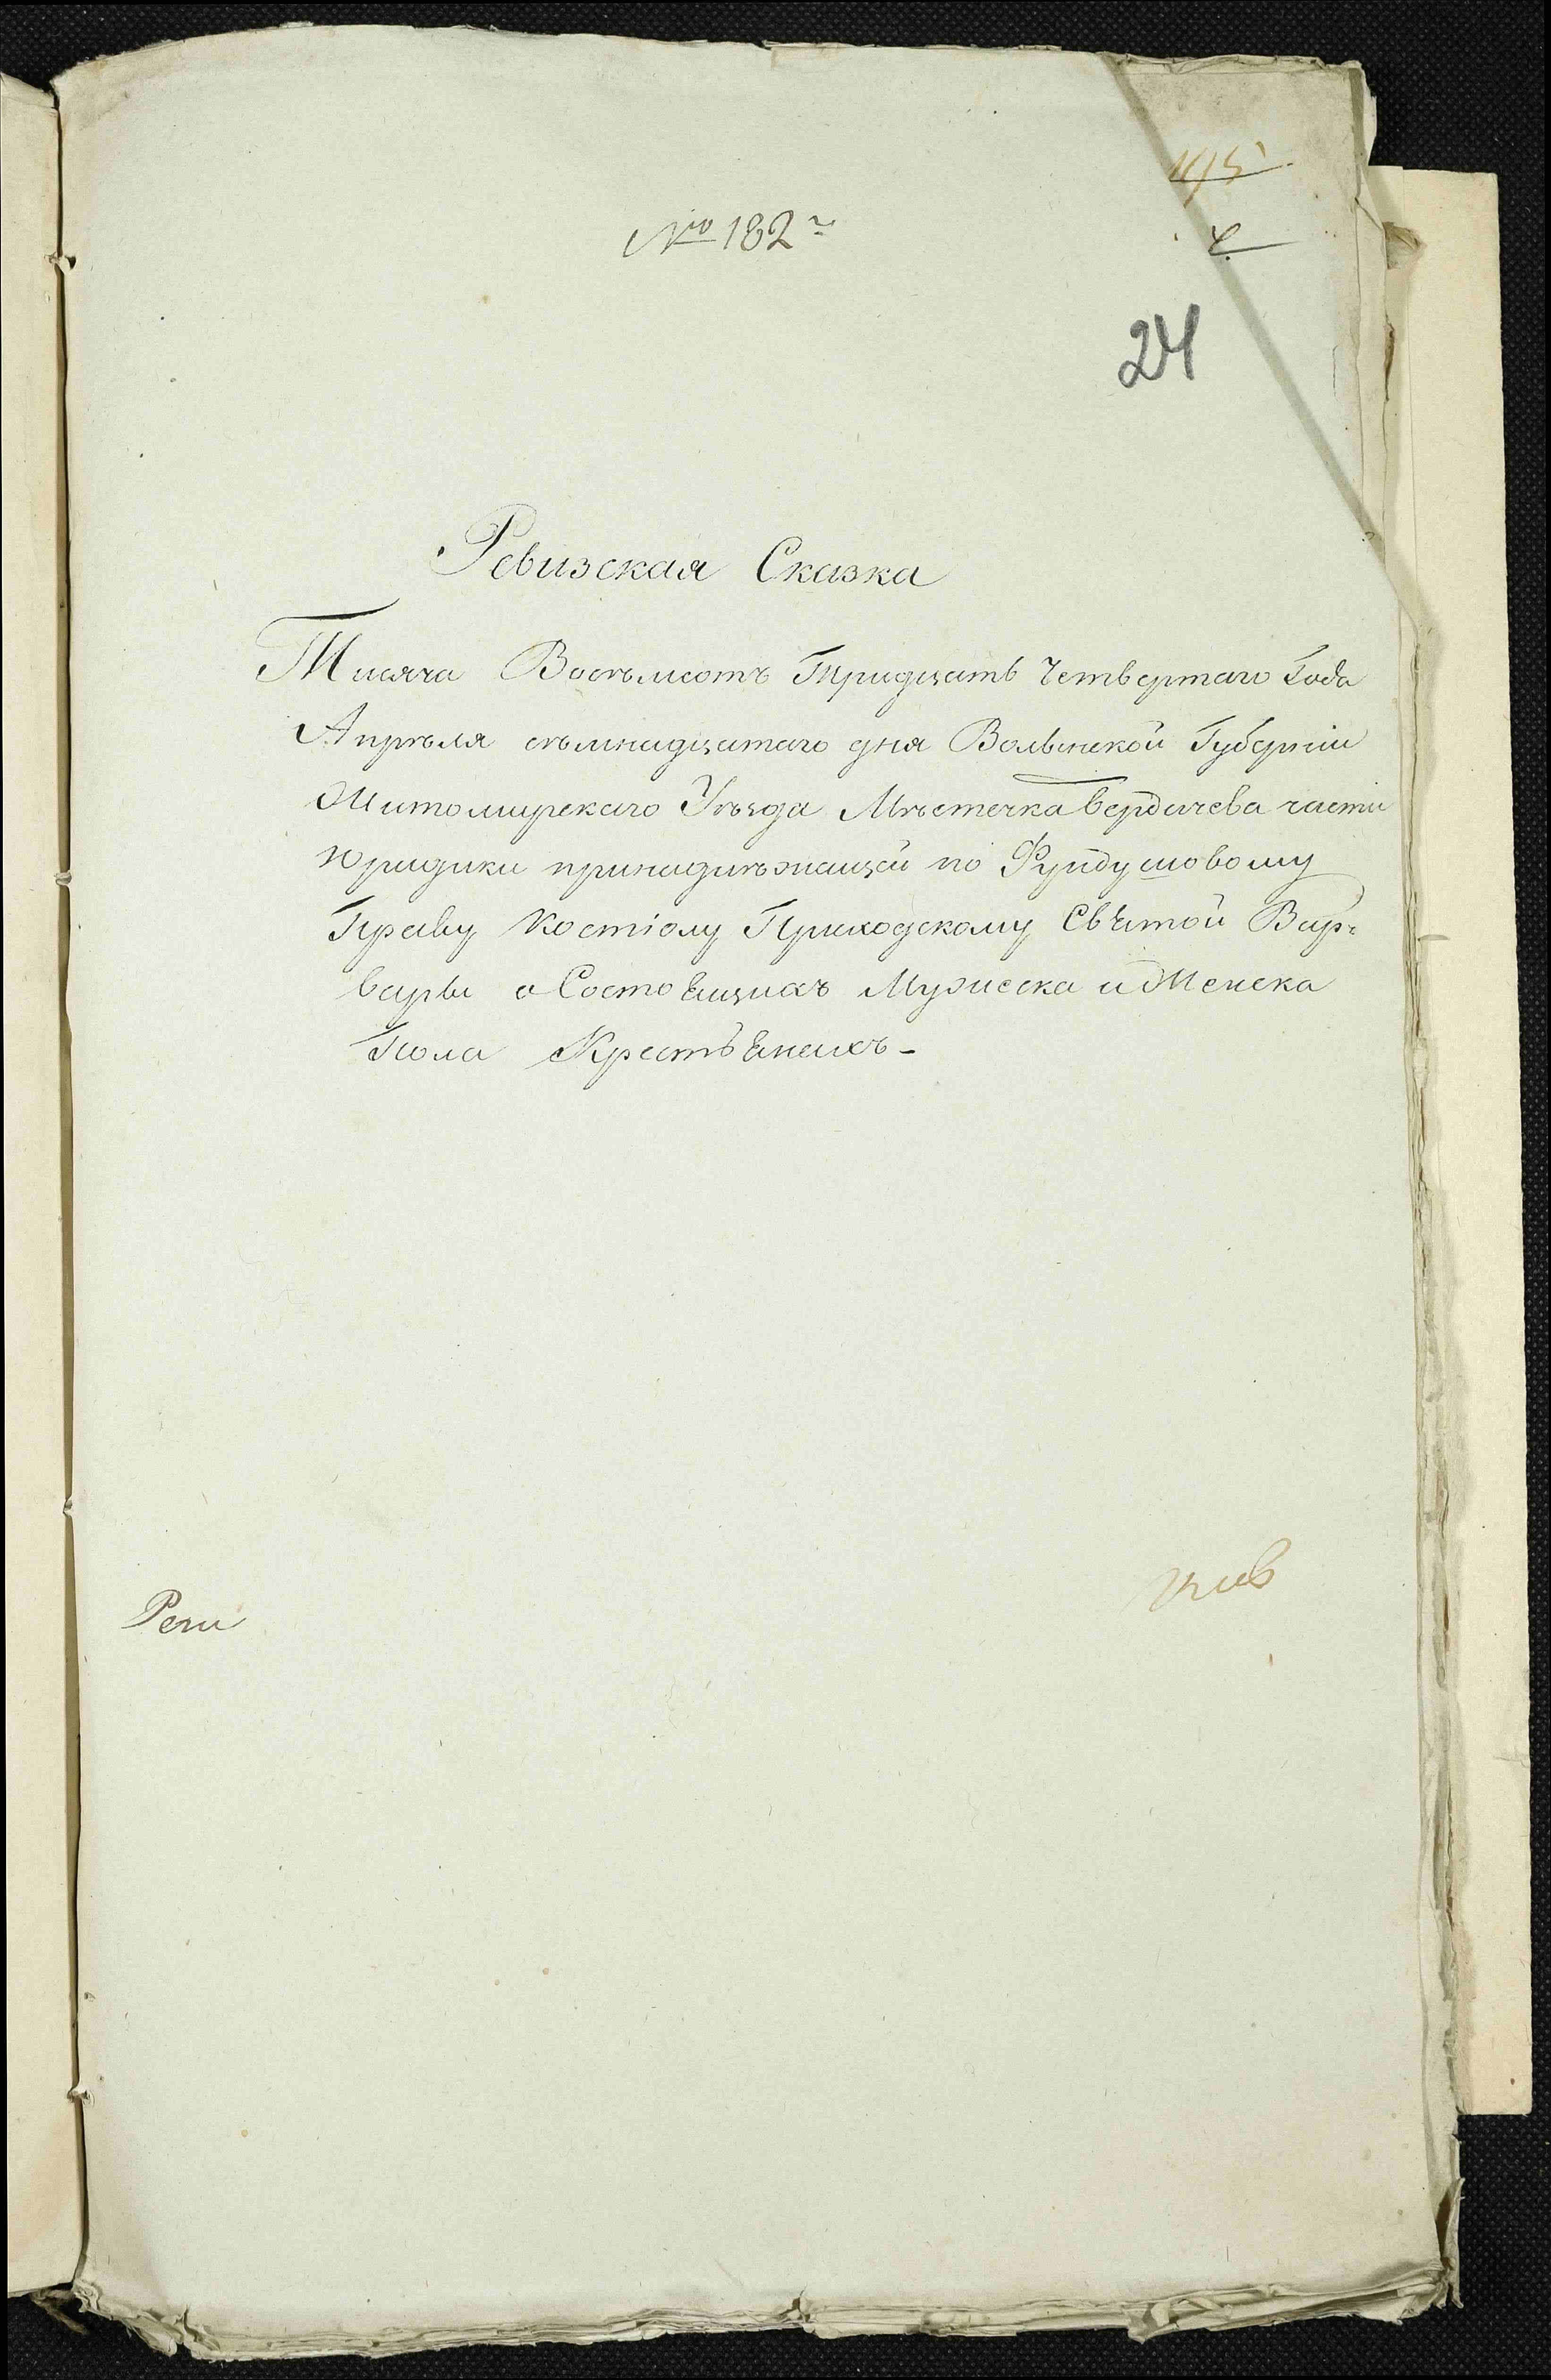 № 182
24
Ревизская Сказка
Тисяча Восѣмсотъ Тридцать Четвертаго Года
Апрѣля сѣмнадцатаго дня Волынской Губерніи
Житомирскаго Уѣзда Мѣстечка Бердичева части
юридики принадлѣжащей по Фундушовому
Праву Костіолу Приходскому Святой Вар-
вары о Состоящихъ Мужеска и Женска
Пола Крестьянехъ -
Реги